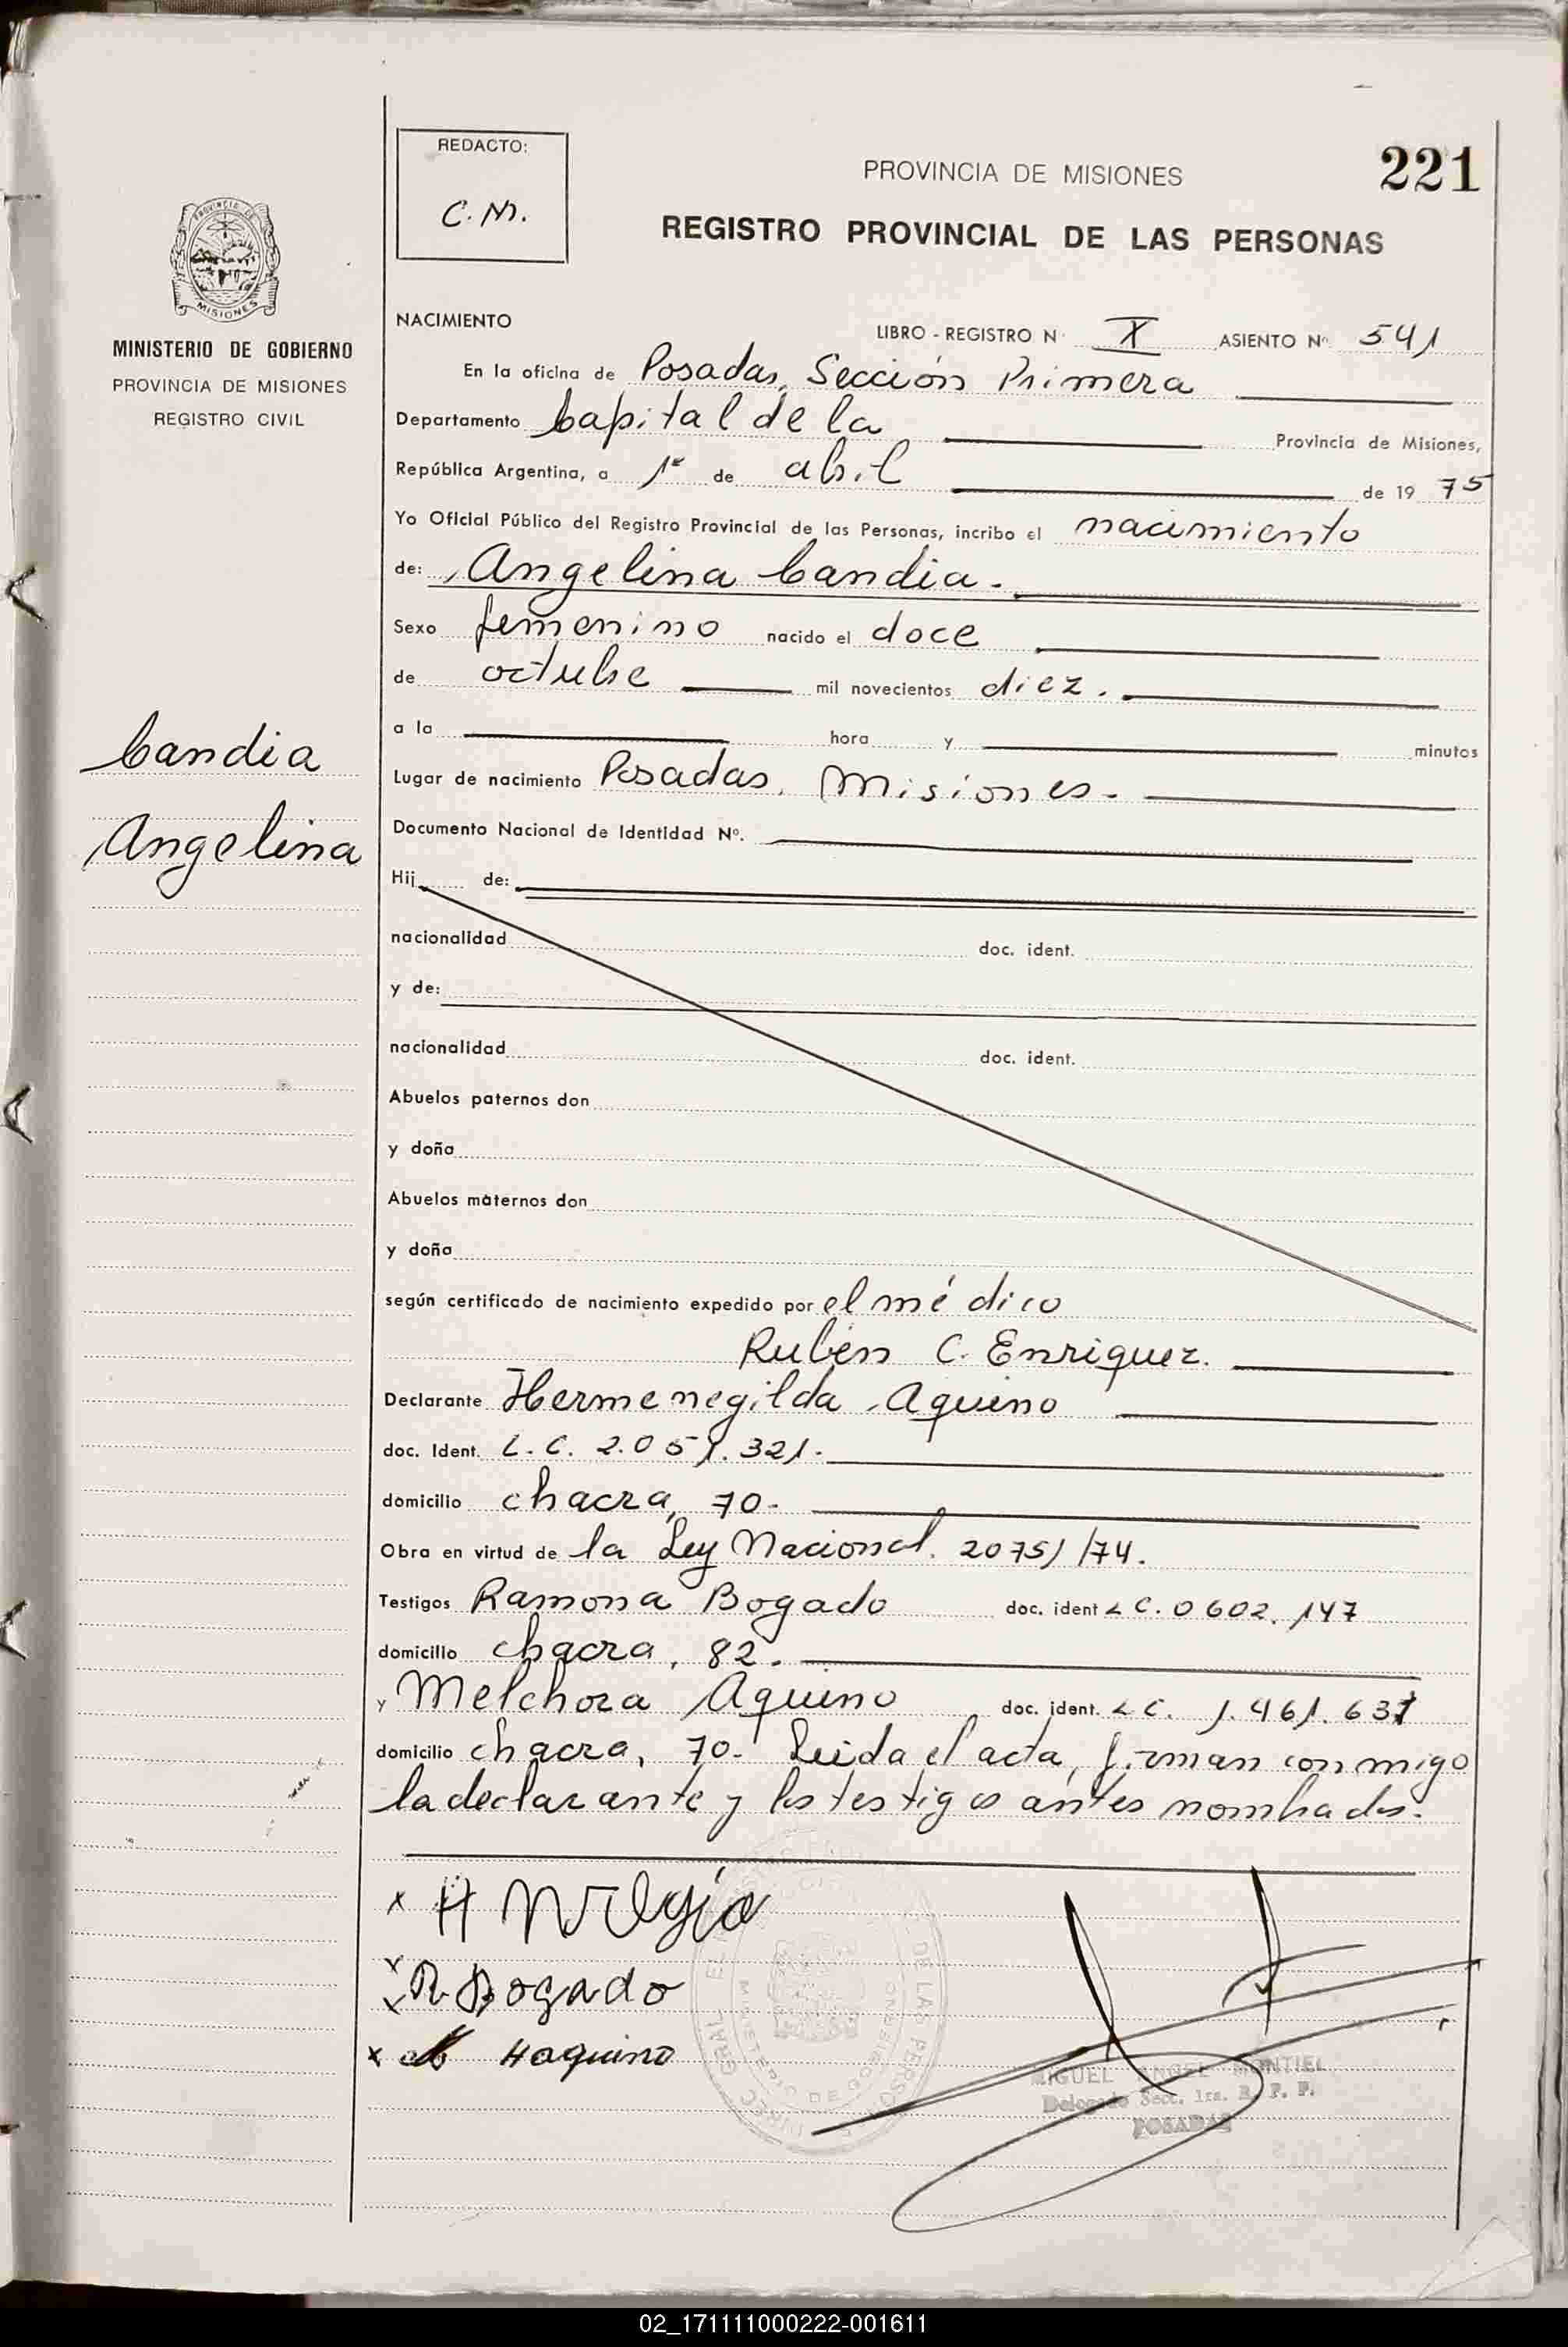 REDACTO:
C. M.
PROVINCIA DE MISIONES
221
REGISTRO PROVINCIAL DE LAS PERSONAS
MISIONES
MINISTERIO DE GOBIERNO
PROVINCIA DE MISIONES
REGISTRO CIVIL
NACIMIENTO
LIBRO - REGISTRO N° X ASIENTO N° 541
En la oficina de Posadas, Sección Primera
Departamento Capital de la Provincia de Misiones,
República Argentina, a 1º de abril de 19 75
Yo Oficial Público del Registro Provincial de las Personas, incribo el nacimiento
de: Angelina Candia.
Sexo femenino nacido el doce
de octubre mil novecientos diez.
a la hora y minutos
Candia
Angelina
Lugar de nacimiento Posadas, Misiones.
Documento Nacional de Identidad Nº.
Hij de:
nacionalidad doc. ident.
y de:
nacionalidad doc. ident.
Abuelos paternos don
y doña
Abuelos maternos don
y doña
según certificado de nacimiento expedido por el médico
Rubén C. Enriquez.
Declarante Hermenegilda Aquino
doc. Ident. L.C. 2.051.321.
domicilio chacra, 70.
Obra en virtud de la Ley Nacional. 20751/74.
Testigos Ramona Bogado doc. ident L C. 0602.147
domicilio chacra, 82.
y Melchora Aquino doc. ident. L C. 1.461.637
domicilio chacra, 70. Leida el acta, firman conmigo
la declarante y los testigos antes nombrados.
x H
x R. Bogado
x Haquino
MIGUEL ANGEL MONTIEL
Delegado Secc. 1ra. R. P. P.
POSADAS
02_171111000222-001611